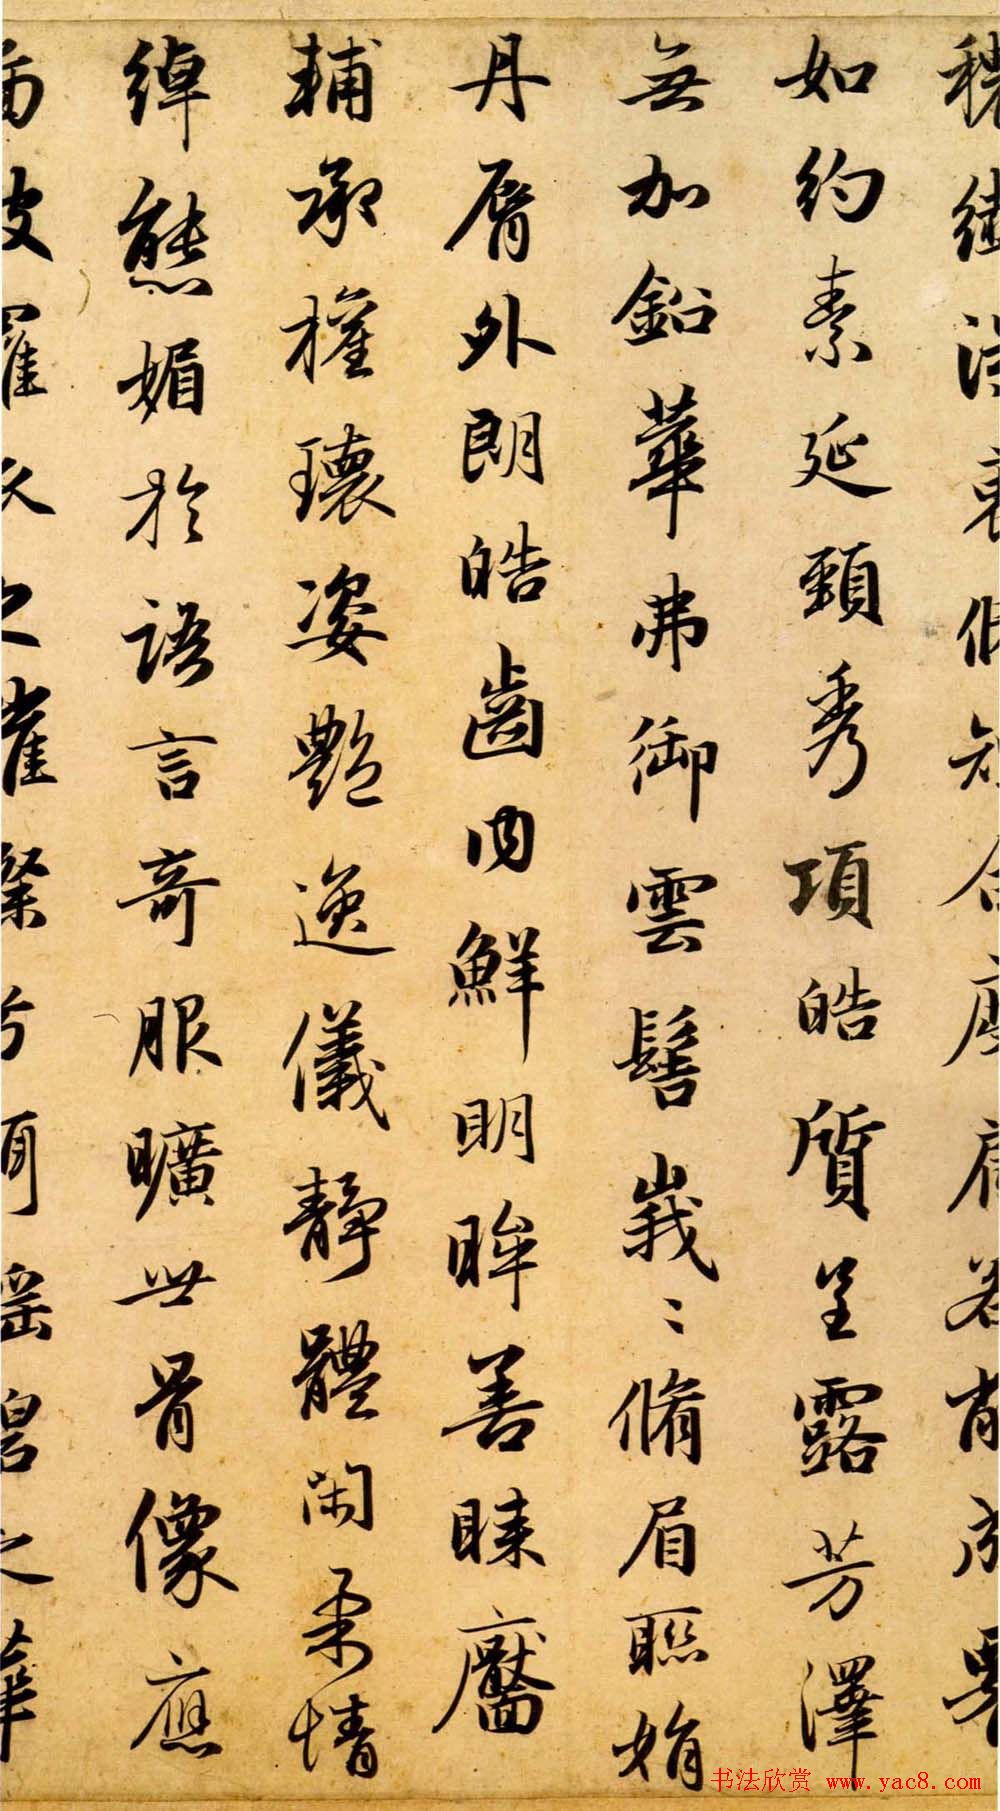 穠纖淂衷脩短合度肩若削成
如約素延頸秀項皓質呈露芳澤
無加鉛華弗御雲髻峩〻脩眉聯娟
丹脣外朗皓齒內鮮明眸善睞靨
輔承權瓌姿艷逸儀靜體閑柔情
綽態媚於語言奇服曠世骨像應
圖披羅衣之璀粲兮珥瑤碧之華
书法欣赏 www.yac8.com